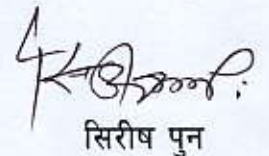 सिरीष पुन